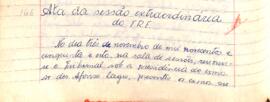 Ata da sessão extraordinária
do T.R.E.
No dia três de novembro de mil novecentos e
cinquenta e oito, na sala de sessões, reuniu-
se o Tribunal sob a presidência do exmo
sr. des. Afonso Lages, presente o exmo sr.